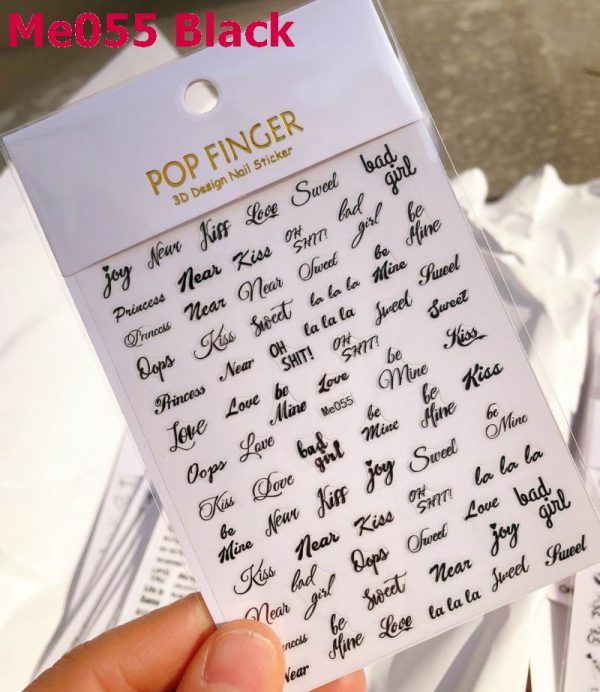 Me055 Black
POP FINGER
3D Design Nail Sticker
joy Near Kiss Love Sweet bad girl
Princess Near Kiss OH SHIT! bad girl be Mine
Princess Near Near Sweet be Mine
Oops Kiss Sweet la la la Sweet
Princess Near OH SHIT! la la la Sweet Sweet
Love Love be Mine Love OH SHIT! be Mine Kiss
Oops Love Me055 be Mine be Mine Kiss
Kiss Love bad girl joy Sweet be Mine
be Mine Near Kiss OH SHIT! la la la
Kiss Near Kiss Sweet Love bad girl
Near bad girl Oops Near joy
be Mine Sweet la la la Sweet Sweet
Near Love